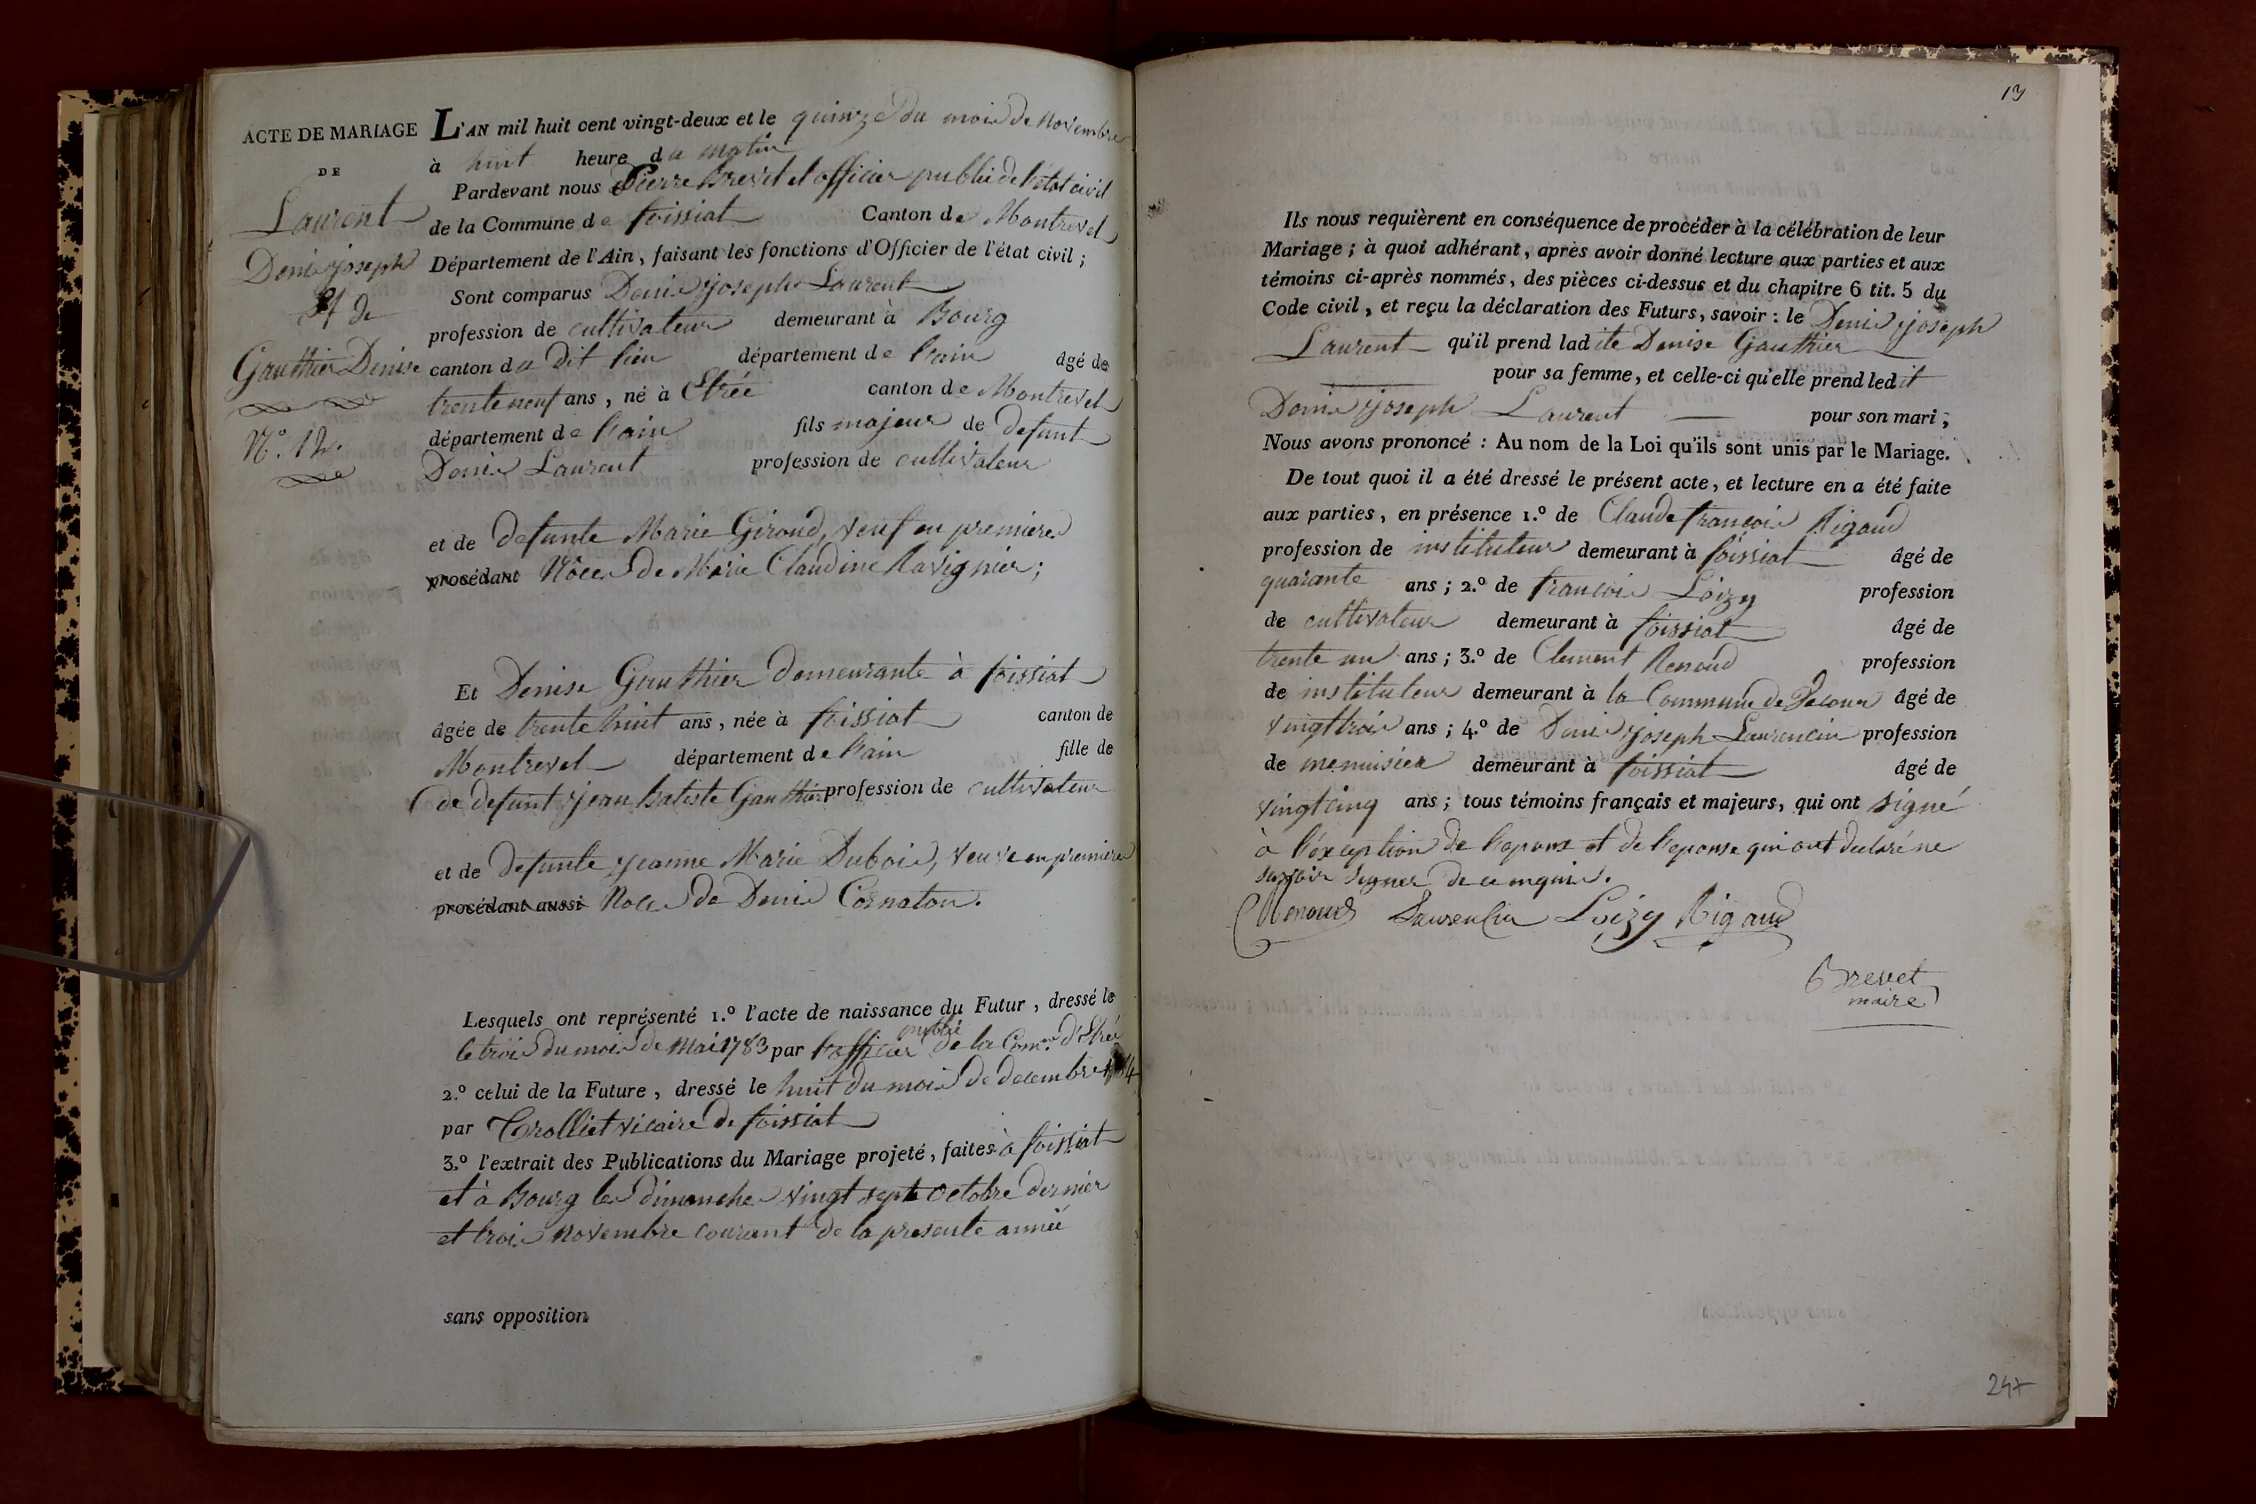 ACTE DE MARIAGE
DE
Laurent
Denis joseph
Et de
Gauthier Denise
N.° 12.
L'AN mil huit cent vingt-deux et le quinze du mois de Novembre
à huit heure du matin
Pardevant nous Pierre Brevet officier public de l'état civil
de la Commune de foissiat Canton de Montrevel
Département de l'Ain, faisant les fonctions d'Officier de l'état civil ;
Sont comparus Denis joseph Laurent
profession de cultivateur demeurant à Bourg
canton du dit lieu département de l'ain âgé de
trente neuf ans, né à Etrée canton de Montrevel
département de l'ain fils majeur de defunt
Denis Laurent profession de cultivateur
et de defunte Marie Giroud, veuf en premiere
procédant Nôces de Marie Claudine Ravignier ;
Et Denise Gauthier demeurante à foissiat
âgée de trente huit ans, née à foissiat canton de
Montrevel département de l'ain fille de
de defunt jean Batiste Gauthier profession de cultivateur
et de defunte jeanne Marie Dubois, veuve en premiere
procédant aussi Noces de Denis Cornaton.
Lesquels ont représenté 1.° l'acte de naissance du Futur, dressé le
le trois du mois de Mai 1783 par l'officier public de la Com.ne d'Etrée
2.° celui de la Future, dressé le huit du mois de decembre
par Trolliet vicaire de foissiat
3.° l'extrait des Publications du Mariage projeté, faites à foissiat
et à Bourg les dimanches vingt sept octobre dernier
et trois novembre courant de la presente année
sans opposition
13
Ils nous requièrent en conséquence de procéder à la célébration de leur
Mariage ; à quoi adhérant, après avoir donné lecture aux parties et aux
témoins ci-après nommés, des pièces ci-dessus et du chapitre 6 tit. 5 du
Code civil, et reçu la déclaration des Futurs, savoir : le Denis joseph
Laurent qu'il prend ladite Denise Gauthier
pour sa femme, et celle-ci qu'elle prend ledit
Denis joseph Laurent pour son mari ;
Nous avons prononcé : Au nom de la Loi qu'ils sont unis par le Mariage.
De tout quoi il a été dressé le présent acte, et lecture en a été faite
aux parties, en présence 1.° de Claude françois Rigaud
profession de instituteur demeurant à foissiat âgé de
quarante ans ; 2.° de françois Loizy profession
de cultivateur demeurant à foissiat âgé de
trente un ans ; 3.° de Clement Renoud profession
de instituteur demeurant à la Commune de âgé de
vingt trois ans ; 4.° de Denis joseph Laurencin profession
de menuisier demeurant à foissiat âgé de
vingt cinq ans ; tous témoins français et majeurs, qui ont signé
à l'éxception de l'epoux et de l'epouse qui ont declaré ne
savoir signer de ce requis.
Renoud Laurencin Loizy Rigaud
Brevet
maire
247